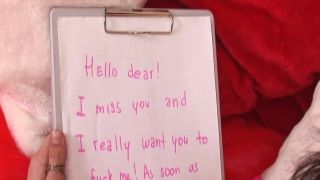 Hello dear!
I miss you and
I really want you to
fuck me! As soon as